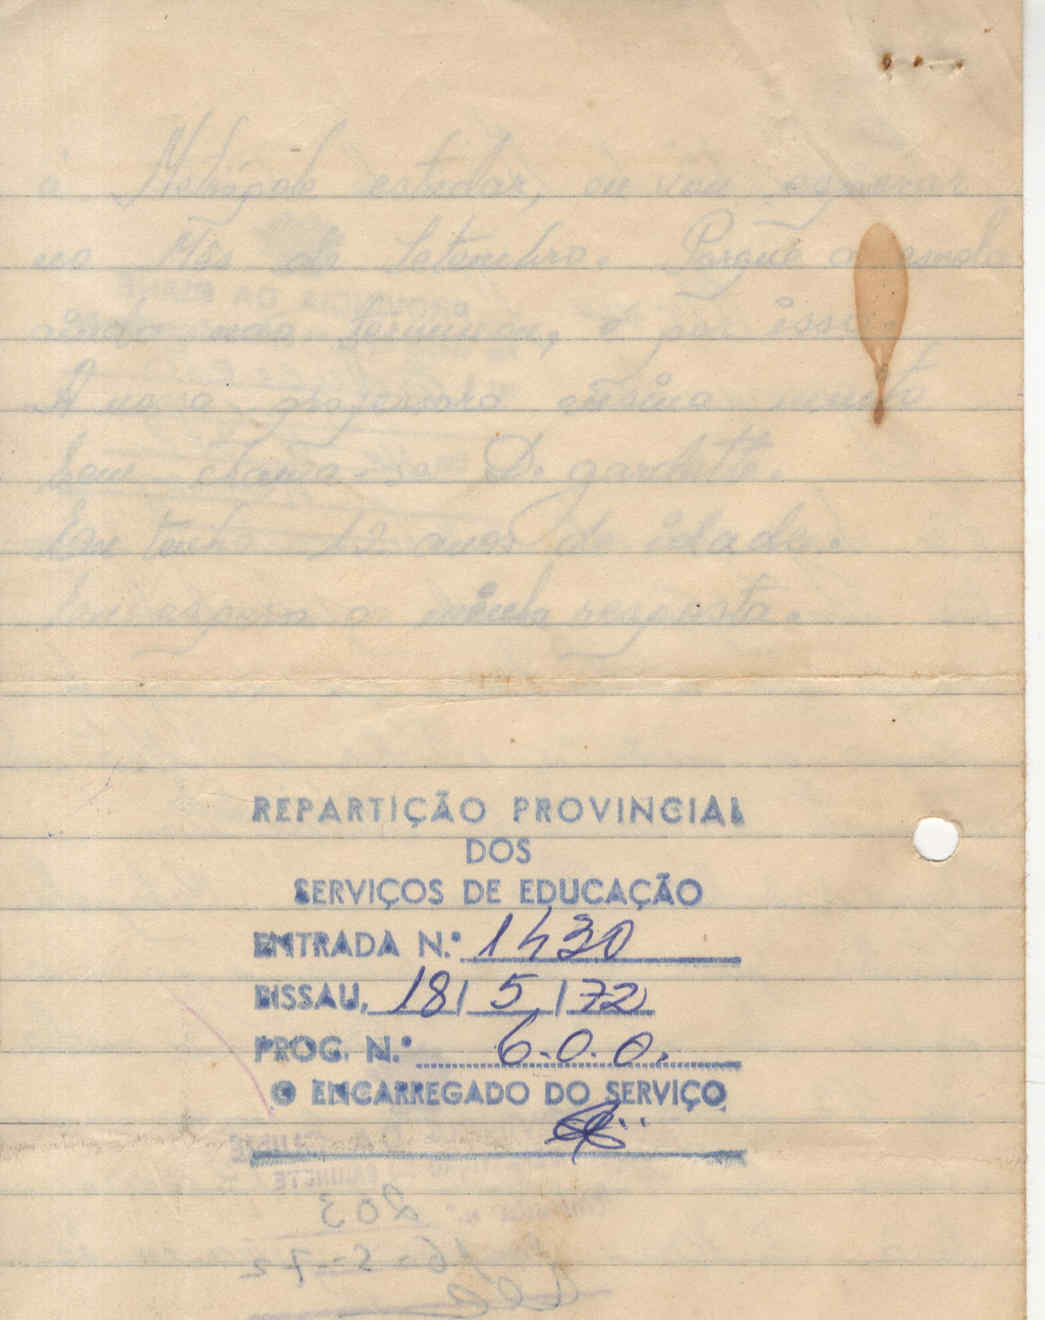 à Metrópole estudar, eu vou esperar
no Mês de Setembro. Porque a escola
ainda não terminou, é por isso.
A nossa professora ensina muito
bem chama-se D.
Eu tenho 12 anos de idade.
Eu espero a minha resposta.
REPARTIÇÃO PROVINCIAL
DOS
SERVIÇOS DE EDUCAÇÃO
ENTRADA N.º 1430
BISSAU, 18/5/72
PROG. N.º 6.0.0.
O ENCARREGADO DO SERVIÇO
203
16-5-72